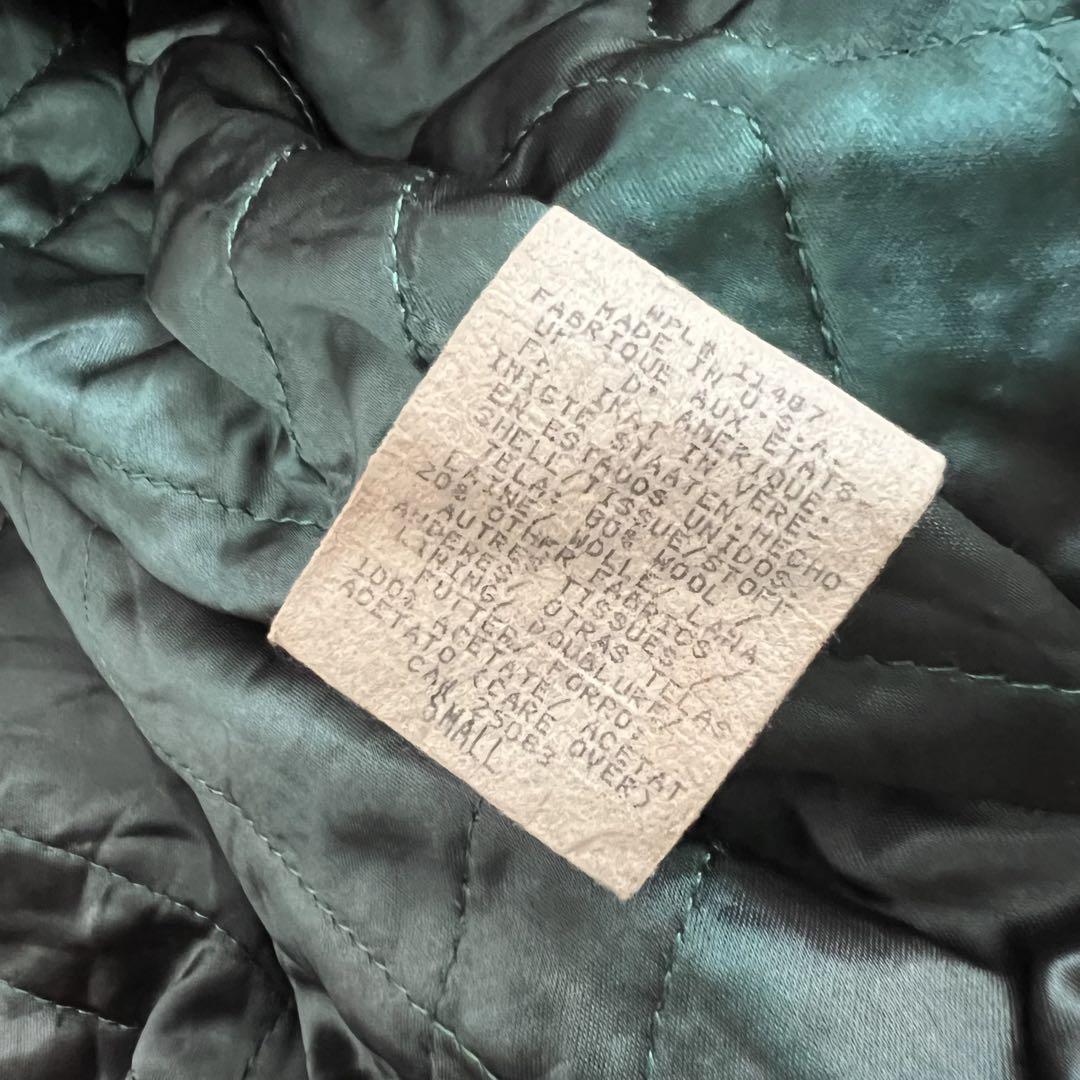 WPL# 11487
MADE IN U.S.A.
FABRIQUE AUX ETATS
UP D' AMERIQUE.
IN VERE-
INIGTE STAATEN.HECHO
EN ESTADOS UNIDOS
SHELL/TISSUE/STOFF
80% WOOL/
LAINE/ WOLLE/ LANA
20% OTHER FABRICS
AUTRE TISSUES/
ANDERE OTRAS TELAS
LINING/ DOUBLURE/
FUTTER/ FORRO:
100% ACETATE/ ACETAT
ACETATO(CARE OVER)
CA# 25083
SMALL